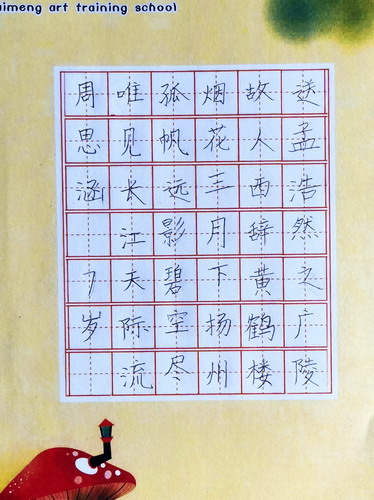 aimeng art training school
送孟浩然之广陵
故人西辞黄鹤楼
烟花三月下扬州
孤帆远影碧空尽
唯见长江天际流
周思涵 7岁